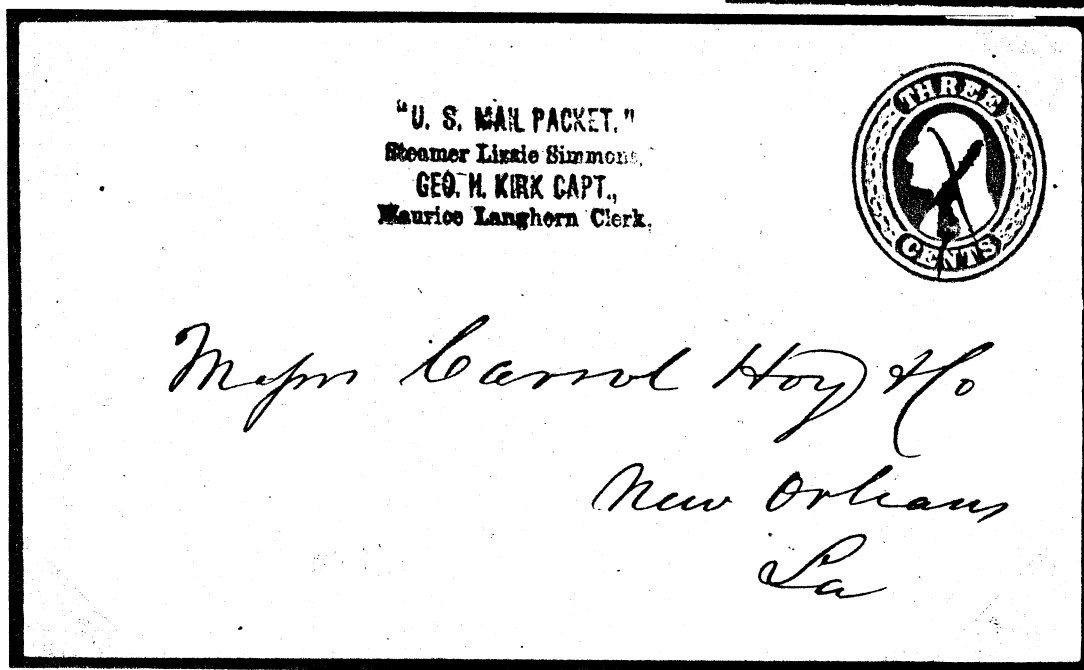 "U. S. MAIL PACKET."
Steamer Lizzie Simmons,
GEO. H. KIRK CAPT.,
Maurice Langhorn Clerk.
THREE
CENTS
Messrs Carrol Hoy & Co
New Orleans
La